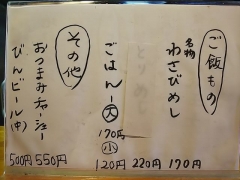 ご飯もの
名物
わさびめし
170円
220円
ごはん-大
170円
小
120円
その他
おつまみチャーシュー
550円
びんビール(中)
500円